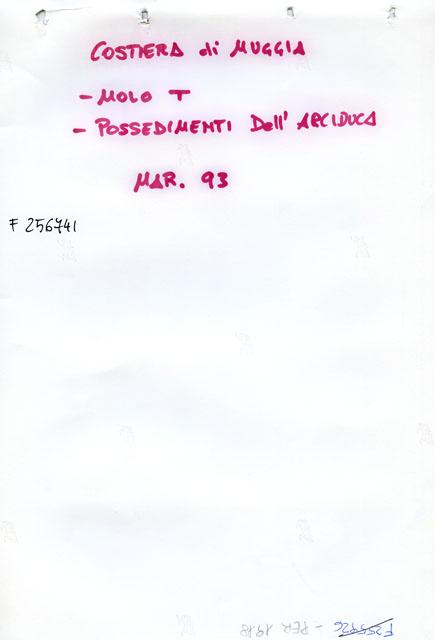 COSTIERA di MUGGIA
- MOLO T
- POSSEDIMENTI Dell' ARCIDUCA
MAR. 93
F 256741
F255926 - PER 1918